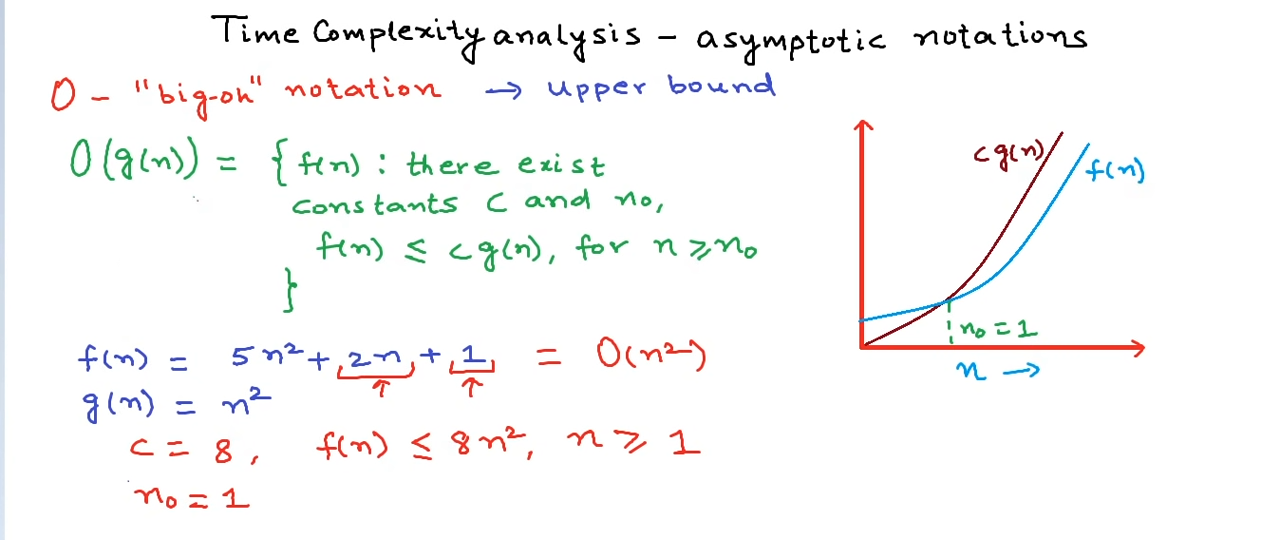 Time Complexity analysis – asymptotic notations
O – "big-oh" notation → upper bound
O(g(n)) = { f(n) : there exist
constants c and n₀,
f(n) ≤ cg(n), for n ≥ n₀
}
f(n) = 5n² + 2n + 1 = O(n²)
↑ ↑
g(n) = n²
c = 8, f(n) ≤ 8n², n ≥ 1
n₀ = 1
cg(n)
f(n)
n₀ = 1
n →